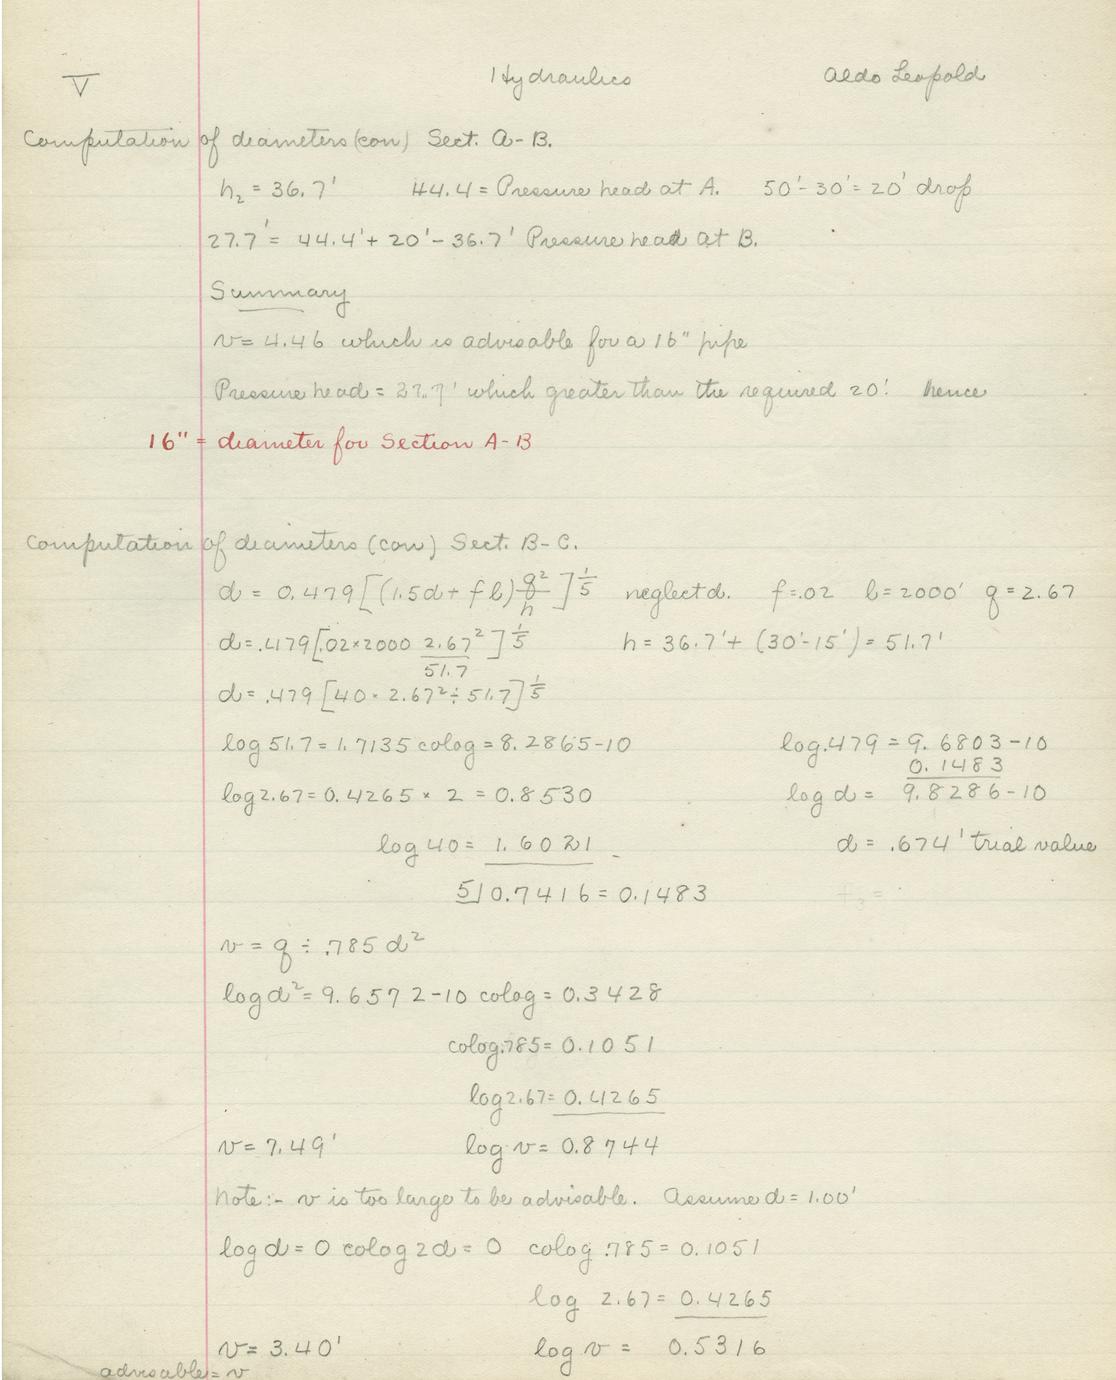 V Hydraulics Aldo Leopold
Computation of diameters (con) Sect. A-B.
h₂ = 36.7' 44.4 = Pressure head at A. 50'-30'= 20' drop
27.7' = 44.4' + 20' - 36.7' Pressure head at B.
Summary
v = 4.46 which is advisable for a 16" pipe
Pressure head = 27.7' which greater than the required 20'. hence
16" = diameter for Section A-B
Computation of diameters (con) Sect. B-C.
d = 0.479 [(1.5d + f l) q²/h ]^1/5 neglect d. f=.02 l=2000' q=2.67
d=.479[.02×2000 2.67²/51.7 ]^1/5 h = 36.7' + (30'-15') = 51.7'
d = .479 [40 × 2.67² ÷ 51.7]^1/5
log 51.7 = 1.7135 colog = 8.2865-10 log .479 = 9.6803-10
0.1483
log 2.67 = 0.4265 × 2 = 0.8530 log d = 9.8286-10
log 40 = 1.6021 d = .674' trial value
5)0.7416 = 0.1483
v = q ÷ .785 d²
log d² = 9.6572-10 colog = 0.3428
colog .785 = 0.1051
log 2.67 = 0.4265
v = 7.49' log v = 0.8744
Note:- v is too large to be advisable. Assume d = 1.00'
log d = 0 colog 2d = 0 colog .785 = 0.1051
log 2.67 = 0.4265
v = 3.40' log v = 0.5316
advisable = v